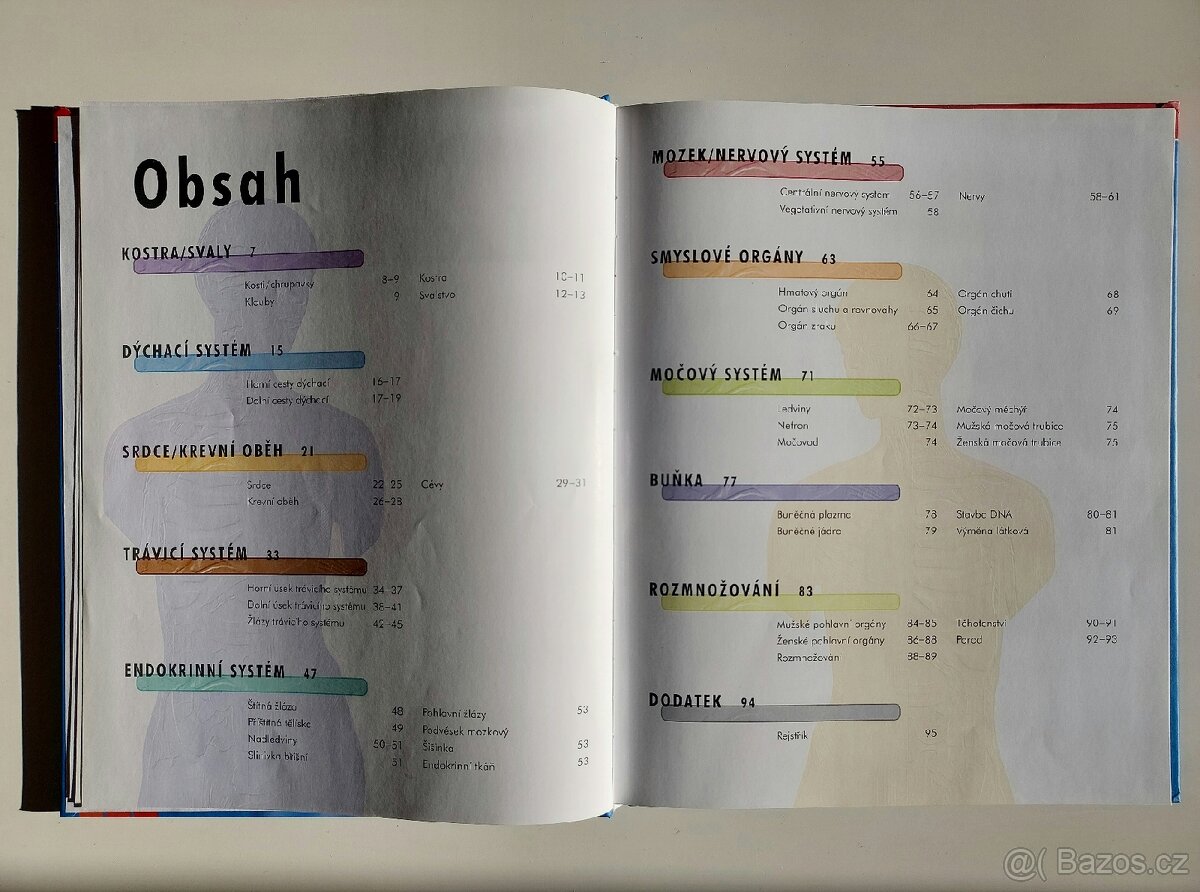 Obsah
KOSTRA/SVALY 7
Kosti/chrupavky 8–9 Kostra 10–11
Klouby 9 Svalstvo 12–13
DÝCHACÍ SYSTÉM 15
Horní cesty dýchací 16–17
Dolní cesty dýchací 17–19
SRDCE/KREVNÍ OBĚH 21
Srdce 22–25 Cévy 29–31
Krevní oběh 26–28
TRÁVICÍ SYSTÉM 33
Horní úsek trávicího systému 34–37
Dolní úsek trávicího systému 38–41
Žlázy trávicího systému 42–45
ENDOKRINNÍ SYSTÉM 47
Štítná žláza 48 Pohlavní žlázy 53
Příštitná tělíska 49 Podvěsek mozkový
Nadledviny 50–51 Šišinka 53
Slinivka břišní 51 Endokrinní tkáň 53
MOZEK/NERVOVÝ SYSTÉM 55
Centrální nervový systém 56–57 Nervy 58–61
Vegetativní nervový systém 58
SMYSLOVÉ ORGÁNY 63
Hmatový orgán 64 Orgán chuti 68
Orgán sluchu a rovnováhy 65 Orgán čichu 69
Orgán zraku 66–67
MOČOVÝ SYSTÉM 71
Ledviny 72–73 Močový měchýř 74
Nefron 73–74 Mužská močová trubice 75
Močovod 74 Ženská močová trubice 75
BUŇKA 77
Buněčná plazma 78 Stavba DNA 80–81
Buněčné jádro 79 Výměna látková 81
ROZMNOŽOVÁNÍ 83
Mužské pohlavní orgány 84–85 Těhotenství 90–91
Ženské pohlavní orgány 86–88 Porod 92–93
Rozmnožování 88–89
DODATEK 94
Rejstřík 95
@( Bazos.cz